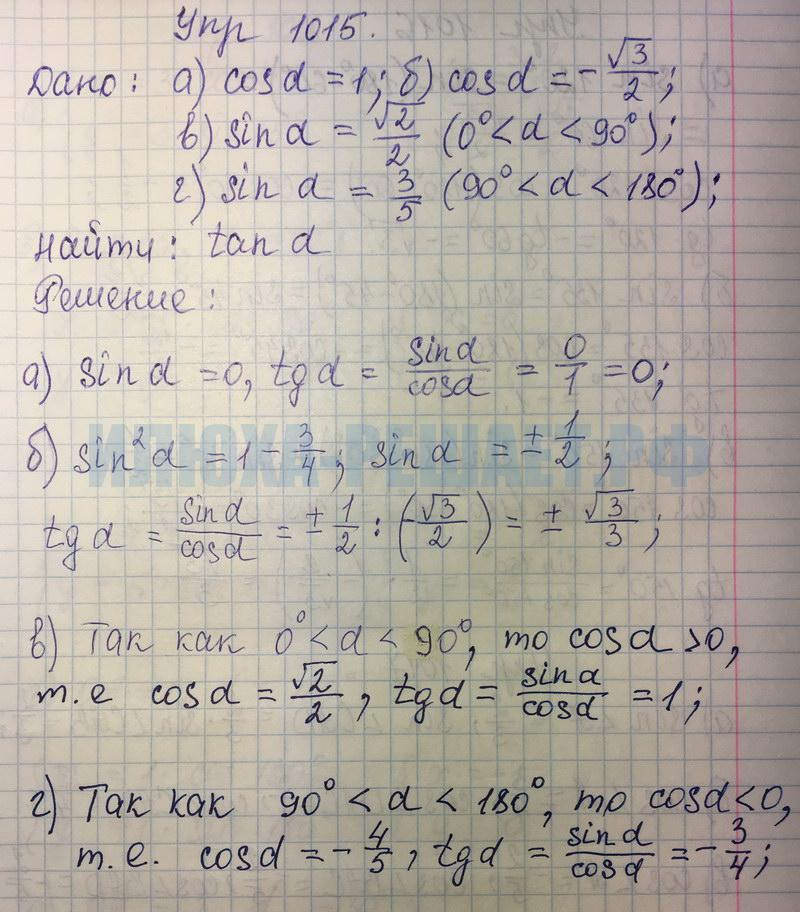 Упр 1015.
Дано: а) cos α = 1; б) cos α = -√3/2;
в) sin α = √2/2 (0° < α < 90°);
г) sin α = 3/5 (90° < α < 180°);
Найти: tan α
Решение:
а) sin α = 0, tg α = sin α/cos α = 0/1 = 0;
ИЛЮХА-РЕШАЕТ.РФ
б) sin² α = 1 - 3/4; sin α = ± 1/2;
tg α = sin α/cos α = ± 1/2 : (-√3/2) = ± √3/3;
в) Так как 0° < α < 90°, то cos α > 0,
т.е cos α = √2/2, tg α = sin α/cos α = 1;
г) Так как 90° < α < 180°, то cos α < 0,
т.е. cos α = -4/5, tg α = sin α/cos α = -3/4;